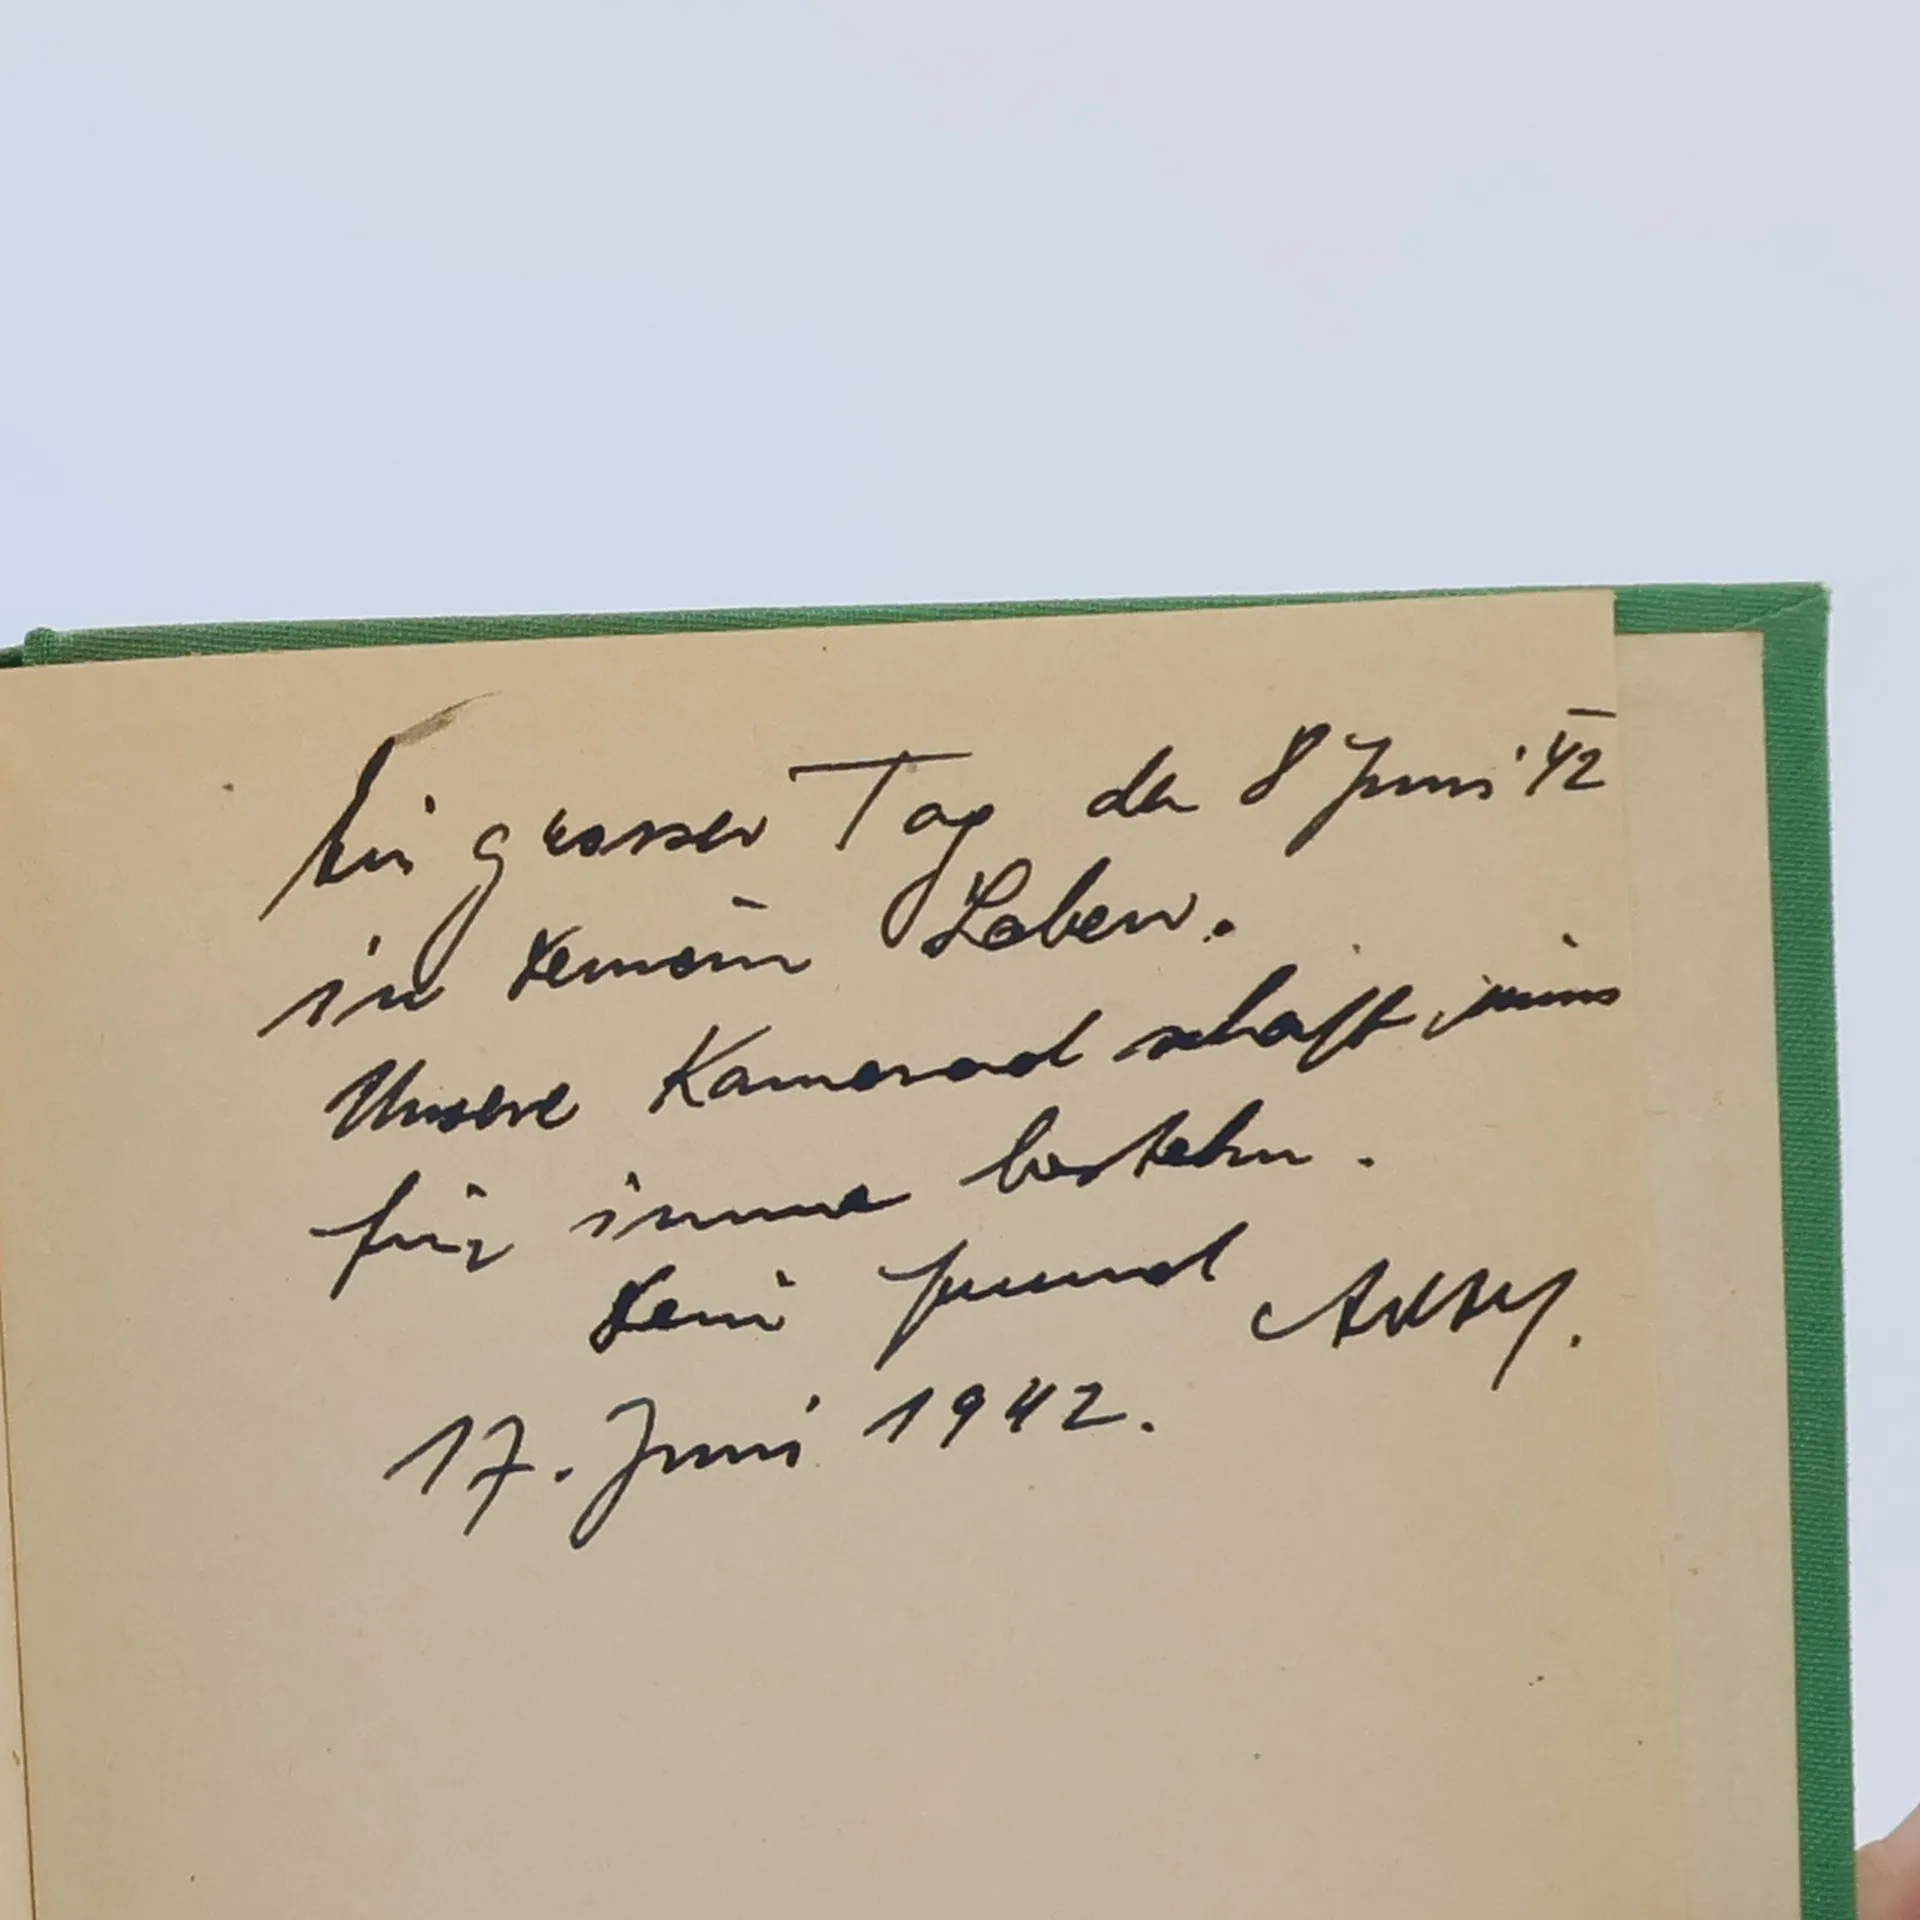 Ein grosser Tag der 8 Juni '42
in Deinem Leben.
Unsere Kameradschaft muss
für immer bestehn.
Dein Freund
17. Juni 1942.